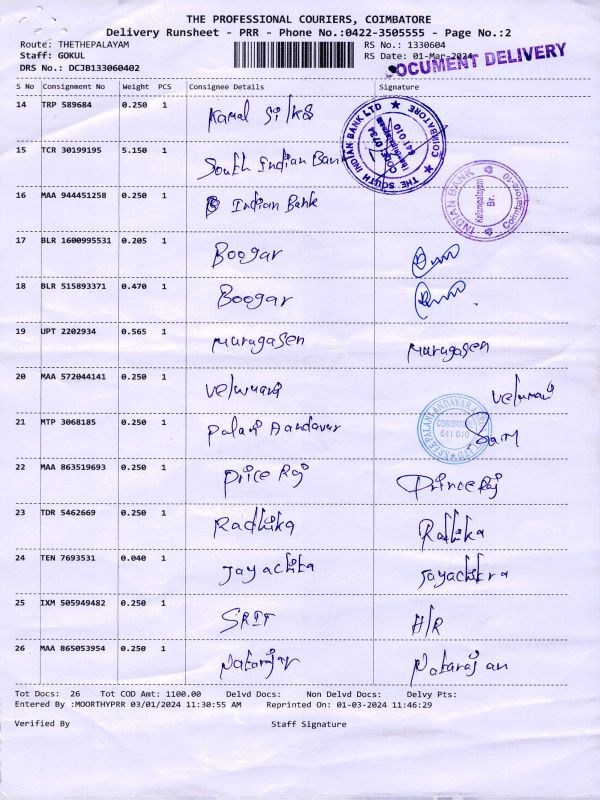 THE PROFESSIONAL COURIERS, COIMBATORE
Delivery Runsheet - PRR - Phone No.:0422-3505555 - Page No.:2
Route: THETHEPALAYAM RS No.: 1330604
Staff: GOKUL RS Date: 01-Mar-2024
DRS No.: DCJB133060402
DOCUMENT DELIVERY
S No Consignment No Weight PCS Consignee Details Signature
14 TRP 589684 0.250 1 Kamal Silks
THE SOUTH INDIAN BANK LTD COIMBATORE 641 010
15 TCR 30199195 5.150 1 South Indian Bank
16 MAA 944451258 0.250 1 Indian Bank
INDIAN BANK Br. Coimbatore
17 BLR 1600995531 0.205 1 Boogar
18 BLR 515893371 0.470 1 Boogar
19 UPT 2202934 0.565 1 Murugasen Murugasen
20 MAA 572044141 0.250 1 Velumani Velumani
21 MTP 3068185 0.250 1 Palani Aandavar Sam
COIMBATORE 641 010
22 MAA 863519693 0.250 1 Price Raj Prince Raj
23 TDR 5462669 0.250 1 Radhika Radhika
24 TEN 7693531 0.040 1 Jayachita Jayachitra
25 IXM 505949482 0.250 1 SRIT H/R
26 MAA 865053954 0.250 1 Natarajar Natarajan
Tot Docs: 26 Tot COD Amt: 1100.00 Delvd Docs: Non Delvd Docs: Delvy Pts:
Entered By :MOORTHYPRR 03/01/2024 11:30:55 AM Reprinted On: 01-03-2024 11:46:29
Verified By Staff Signature